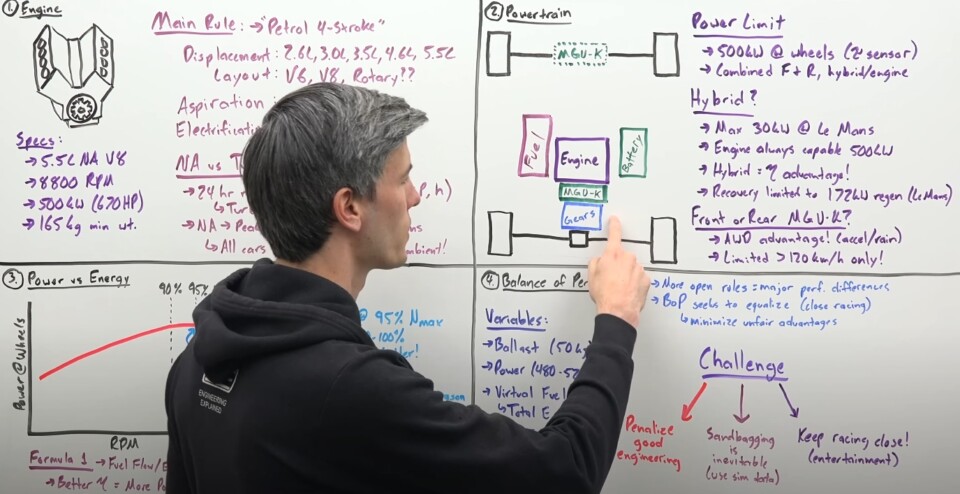 1. Engine
Main Rule: → "Petrol 4-Stroke"
Displacement: 2.6L, 3.0L, 3.5L, 4.6L, 5.5L
Layout: V6, V8, Rotary??
Aspiration :
NA vs
→ 24 hr
→ NA →
↳ All cars
Specs:
→ 5.5L NA V8
→ 8800 RPM
→ 500kW (670HP)
→ 165kg min wt.
2. Powertrain
MGU-K
Fuel
Engine
Battery
MGU-K
Gears
Power Limit
→ 500kW @ wheels (2 sensor)
→ Combined F & R, hybrid/engine
Hybrid?
→ Max 30kW @ Le Mans
→ Engine always capable 500kW
→ Hybrid = η advantage!
→ Recovery limited to 172kW regen (Le Mans)
Front or Rear MGU-K?
→ AWD advantage! (accel/rain)
→ Limited >120km/h only!
3. Power vs Energy
90% 95%
Power@Wheels
RPM
@ 95% Nmax
100%
Formula 1 → Fuel Flow/
↳ Better η = More
ENGINEERING
EXPLAINED
4. Balance of
→ More open rules = major perf. differences
→ BoP seeks to equalize (close racing)
↳ minimize unfair advantages
Variables:
→ Ballast (50
→ Power (480-
→ Virtual Fuel
↳ Total
Challenge
Penalize
good
engineering
Sandbagging
is
inevitable
(use sim data)
Keep racing close!
(entertainment)